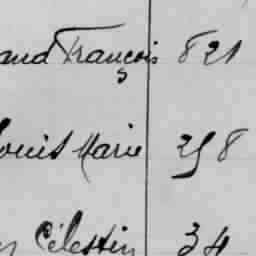 and François 821
Louis Marie 298
Célestin 34